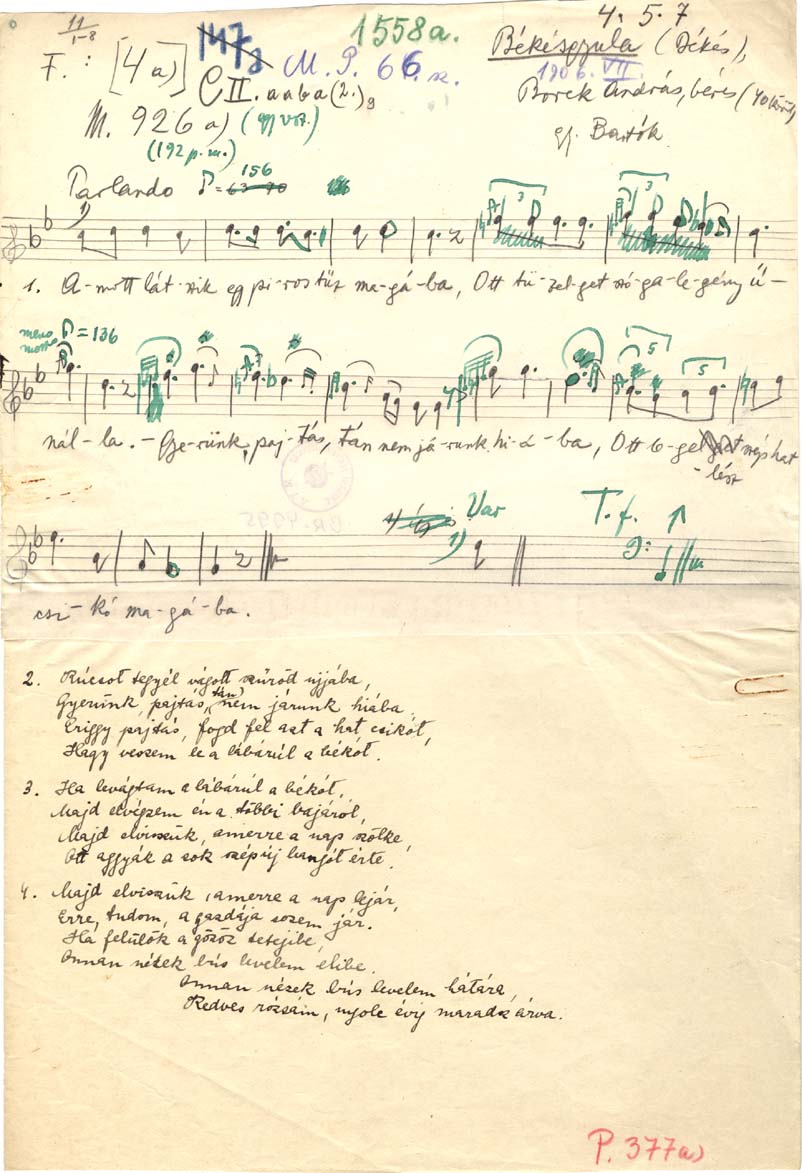 11
1-8
147a
1558a.
4. 5. 7
F. : [4a)]
C II. a a b a (2.) 9
M. P. 66. sz.
Békésgyula (Békés),
1906. VII.
Borek András, béres (40 körül)
M. 926 a)
gy. Bartók.
(192 p. m.)
Parlando = 63-70 156
1)
1. A-mott lát-szik egy pi-ros tűz ma-gá-ba, Ott tü-zel-get szó-ga-le-gény ű-
meno mosso = 136
nál-la. - Gye-rünk, paj-tás, tán nem já-runk hi-á-ba, Ott le-gel- szép hat
-lész
Var
T. f. ↑
1)
csi-kó ma-gá-ba.
2. Rúcsot tegyél vágott szűröd ujjába,
Gyerünk, pajtás, (tán) nem járunk hiába.
Eriggy pajtás, fogd fel azt a hat csikót,
Hagy veszem le a lábárúl a békót.
3. Ha levágtam a lábárúl a békót,
Majd elvégzem én a többi bajáról,
Majd elvisszük, amerre a nap szőlke,
Ott aggyák a sok szép új bangót érte.
4. Majd elviszük, amerre a nap lejár,
Erre, tudom, a gazdája sozem jár.
Ha felülök a gőzöz tetejibe,
Onnan nézek bús levelem elibe.
Onnan nézek bús levelem hátára,
Kedves rózsám, nyolc évig maradsz árva.
P. 377a)